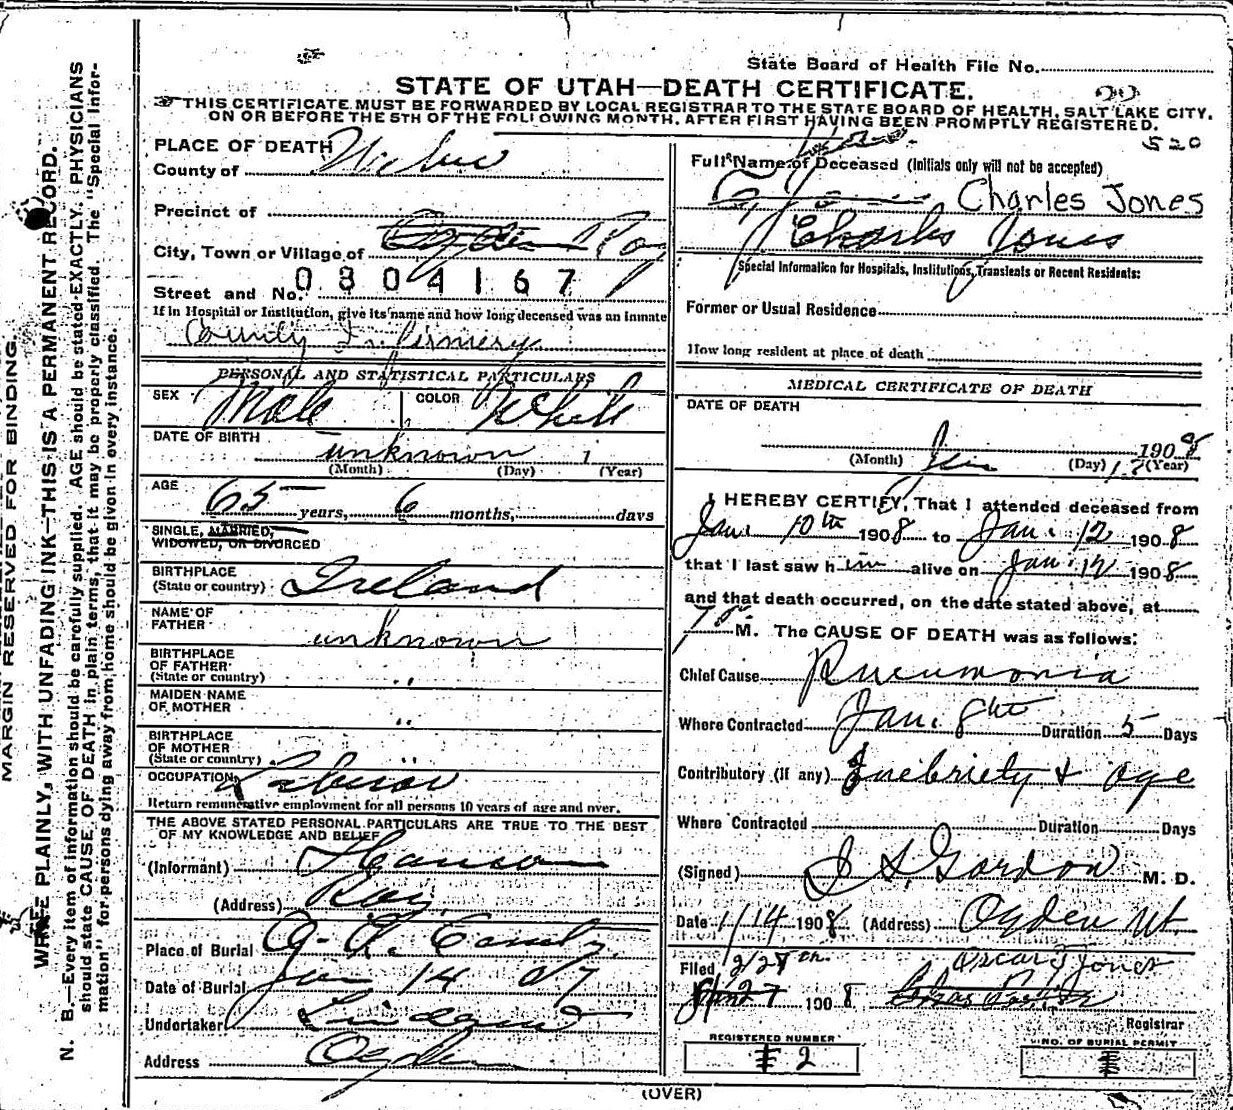 State Board of Health File No.
STATE OF UTAH—DEATH CERTIFICATE.
THIS CERTIFICATE MUST BE FORWARDED BY LOCAL REGISTRAR TO THE STATE BOARD OF HEALTH, SALT LAKE CITY,
ON OR BEFORE THE 5TH OF THE FOLLOWING MONTH, AFTER FIRST HAVING BEEN PROMPTLY REGISTERED.
520
MARGIN RESERVED FOR BINDING.
WRITE PLAINLY, WITH UNFADING INK—THIS IS A PERMANENT RECORD.
N. B.—Every item of information should be carefully supplied. AGE should be stated EXACTLY. PHYSICIANS
should state CAUSE OF DEATH in plain terms, that it may be properly classified. The "Special Infor-
mation" for persons dying away from home should be given in every instance.
PLACE OF DEATH
County of Weber
Precinct of
City, Town or Village of Ogden Roy
Street and No. 0804167
If in Hospital or Institution, give its name and how long deceased was an inmate
County Infirmery
PERSONAL AND STATISTICAL PARTICULARS
SEX Male COLOR White
DATE OF BIRTH unknown 1
(Month) (Day) (Year)
AGE 65 years, 6 months, days
SINGLE, MARRIED,
WIDOWED, OR DIVORCED
BIRTHPLACE
(State or country) Ireland
NAME OF
FATHER unknown
BIRTHPLACE
OF FATHER
(State or country) "
MAIDEN NAME
OF MOTHER "
BIRTHPLACE
OF MOTHER
(State or country)
OCCUPATION
Return remunerative employment for all persons 10 years of age and over.
THE ABOVE STATED PERSONAL PARTICULARS ARE TRUE TO THE BEST
OF MY KNOWLEDGE AND BELIEF
(Informant)
(Address) Roy
Place of Burial
Date of Burial Jan 14 07
Undertaker
Address Ogden
Full Name of Deceased (Initials only will not be accepted)
Charles Jones
Charles Jones
Special Information for Hospitals, Institutions, Transients or Recent Residents:
Former or Usual Residence
How long resident at place of death
MEDICAL CERTIFICATE OF DEATH
DATE OF DEATH
1908
(Month) Jan (Day) (Year)
I HEREBY CERTIFY, That I attended deceased from
Jan. 10th 1908 to Jan. 12 1908
that I last saw him alive on Jan. 12 1908
and that death occurred, on the date stated above, at
M. The CAUSE OF DEATH was as follows:
Chief Cause Pneumonia
Where Contracted Jan. 8th Duration 5 Days
Contributory (if any) Inebriety + age
Where Contracted Duration Days
(Signed) J S Gordon M. D.
Date 1/14 1908 (Address) Ogden Ut.
Filed 2/28th Oscar Jones
Jan 27 1908
Registrar
REGISTERED NUMBER
2
NO. OF BURIAL PERMIT
(OVER)